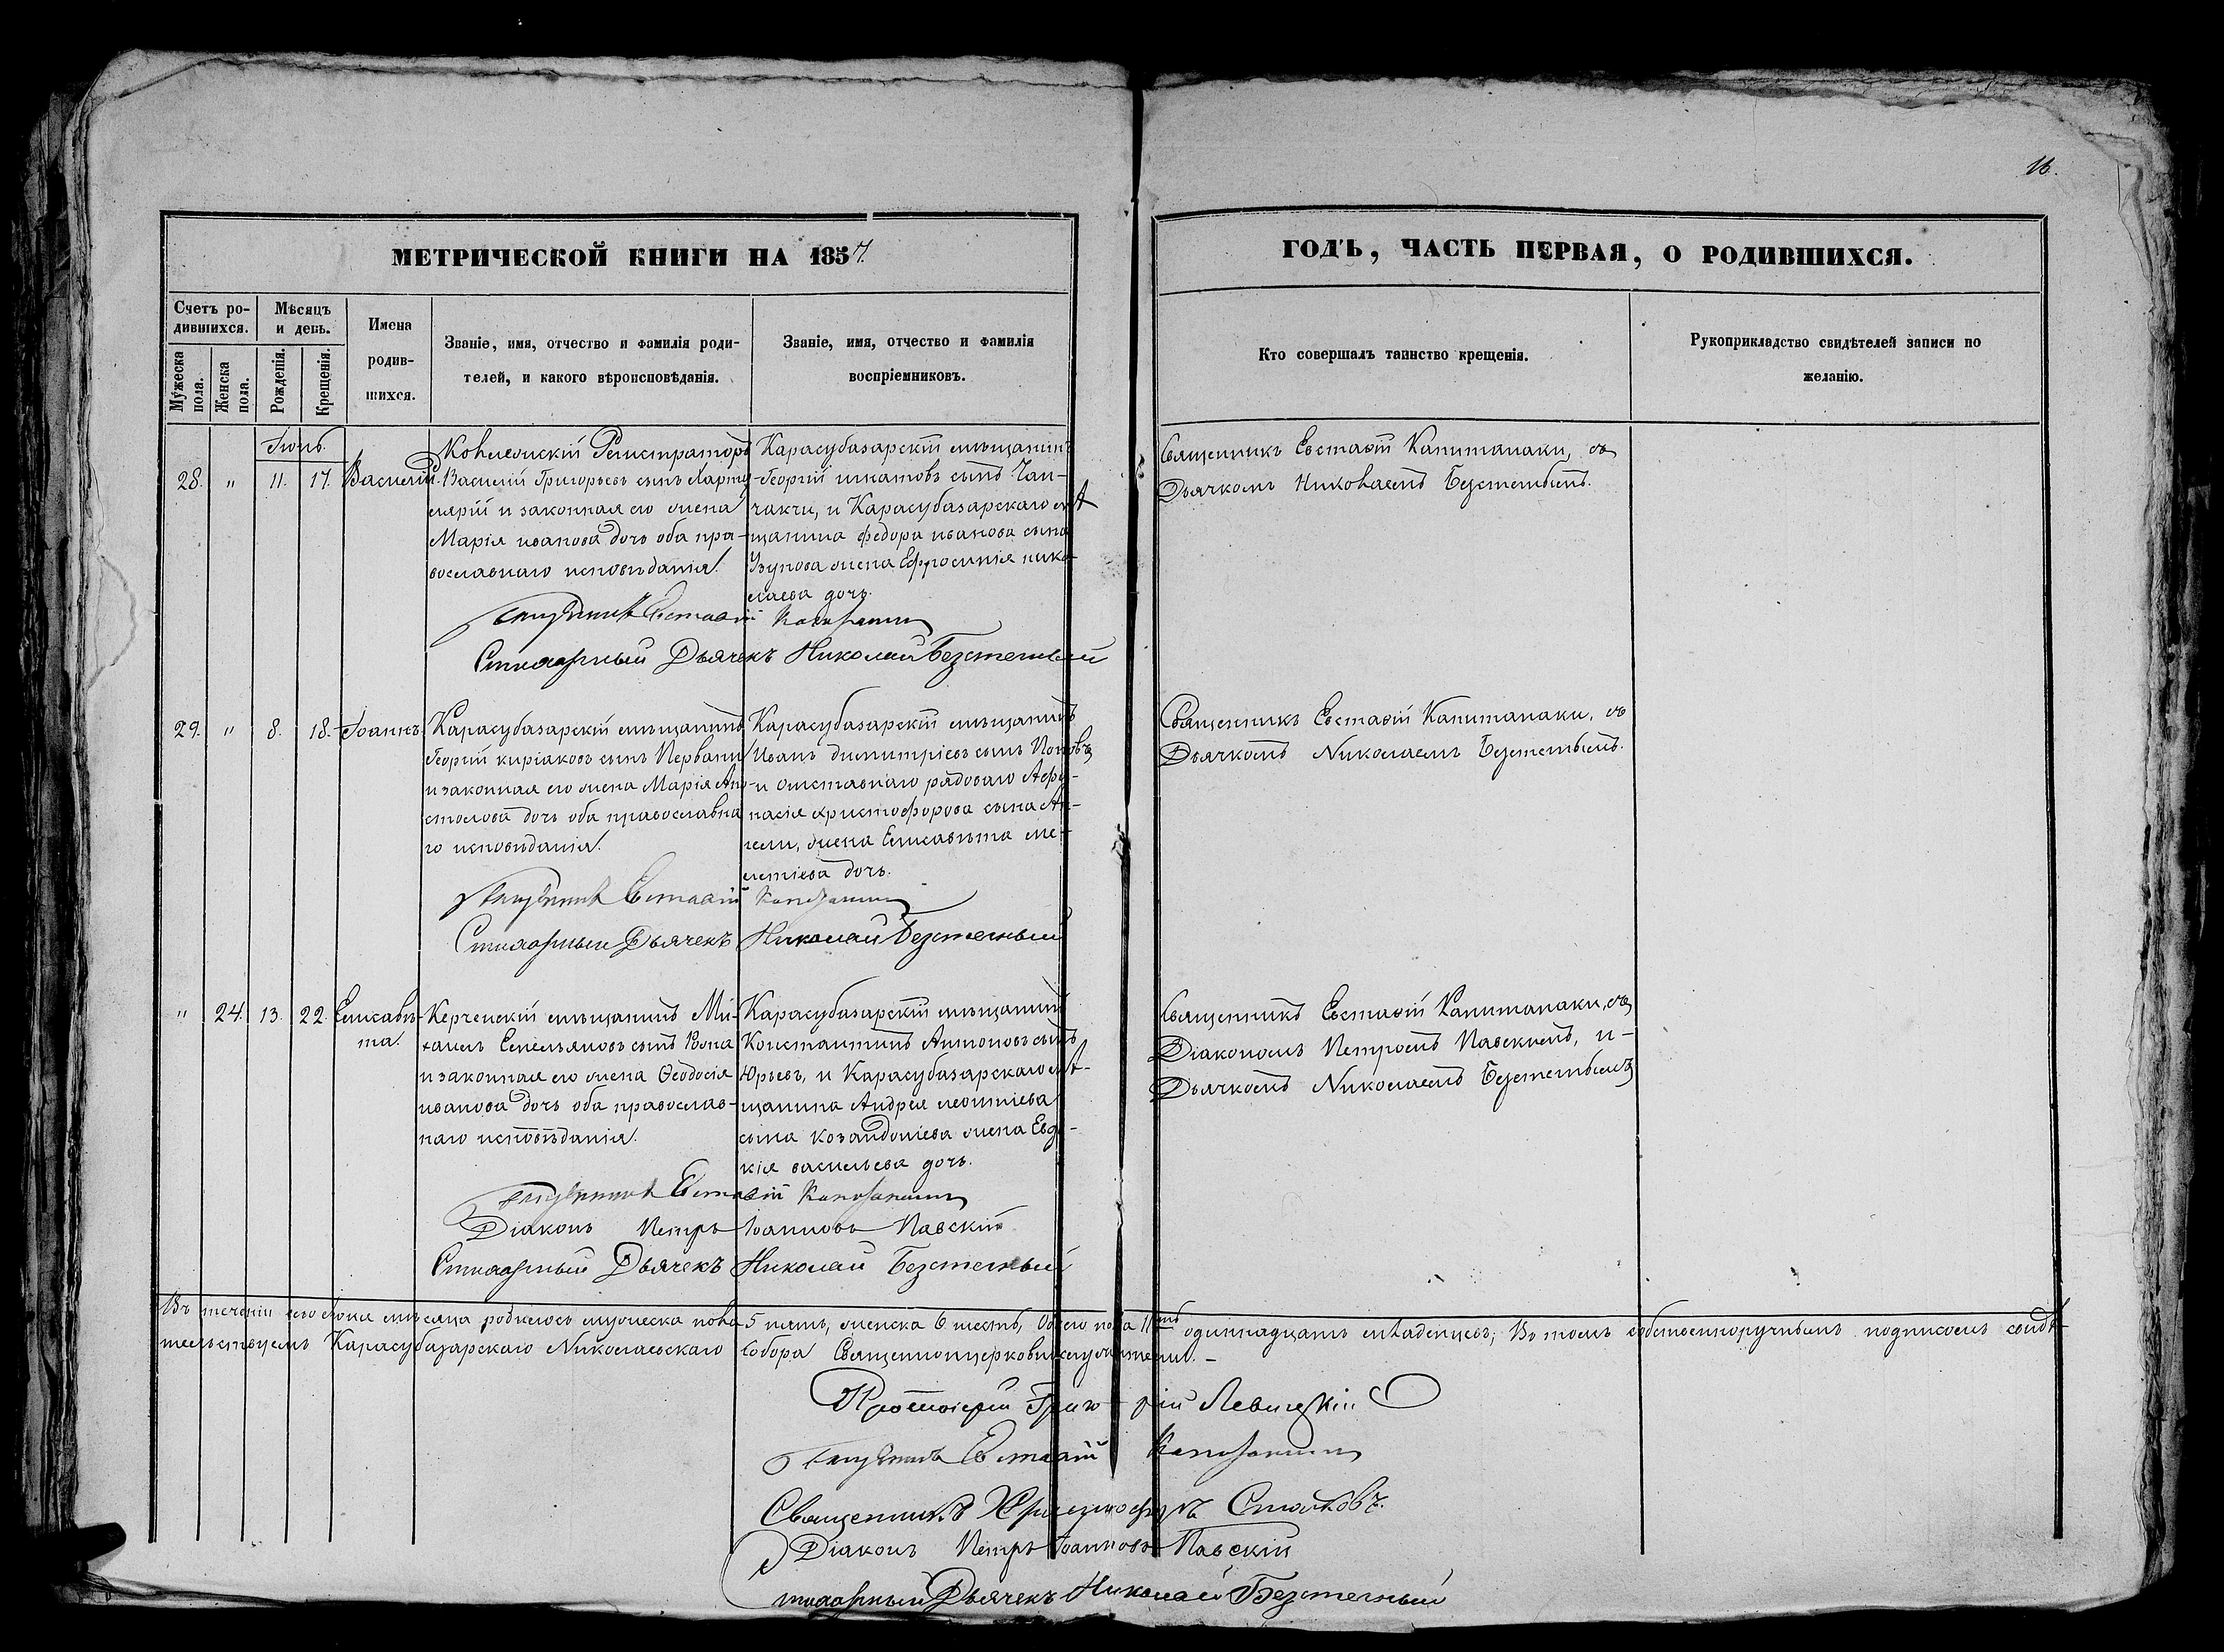 16.
МЕТРИЧЕСКОЙ КНИГИ НА 1857.
ГОДЪ, ЧАСТЬ ПЕРВАЯ, О РОДИВШИХСЯ.
Счетъ ро-
дившихся.
Мужеска
пола.
Женска
пола.
Мѣсяцъ
и день.
Рожденія.
Крещенія.
Имена
родив-
шихся.
Званіе, имя, отчество и фамилія роди-
телей, и какого вѣроисповѣданія.
Званіе, имя, отчество и фамилія
воспріемниковъ.
Кто совершалъ таинство крещенія.
Рукоприкладство свидѣтелей записи по
желанію.
Іюнь.
28. " 11. 17. Василій.
Регистраторъ
Василій Григорьевъ сынъ
и законная его жена
Марія иванова дочь оба пра-
вославнаго исповѣданія.
Карасубазарскій мѣщанинъ
Георгій сынъ Чап-
чакчи, и Карасубазарскаго мѣ-
щанина Федора иванова сына
Узунова жена Ефросинія нико-
лаева дочь.
Священникъ Евстафій Капитанаки, съ
Дьячкомъ Николаемъ Безстеннымъ.
Священникъ Евстафій Капитанаки
Стихарный Дьячекъ Николай Безстенный
29. " 8. 18. Іоаннъ.
Карасубазарскій мѣщанинъ
Георгій киріаковъ сынъ
и законная его жена Марія Апо-
столова дочь оба православна
го исповѣданія.
Карасубазарскій мѣщанинъ
Иванъ димитріевъ сынъ Поповъ
и отставнаго рядоваго Афа-
насія христофорова сына
жена Елисавета ме-
летіева дочь.
Священникъ Евстафій Капитанаки, съ
Дьячкомъ Николаемъ Безстеннымъ.
Священникъ Евстафій Капитанаки
Стихарный Дьячекъ Николай Безстенный
" 24. 13. 22. Елисаве-
та.
Керченскій мѣщанинъ Ми-
хаилъ Емельяновъ сынъ
и законная его жена Ѳеодосія
иванова дочь оба православ-
наго исповѣданія.
Карасубазарскій мѣщанинъ
Константинъ Антоновъ сынъ
Юрьевъ, и Карасубазарскаго мѣ-
щанина Андрея леонтіева
сына жена Евдо-
кія васильева дочь.
Священникъ Евстафій Капитанаки, съ
Діакономъ Петромъ Павскимъ, и
Дьячкомъ Николаемъ Безстеннымъ
Священникъ Евстафій Капитанаки
Діаконъ Петръ Іоанновъ Павскій
Стихарный Дьячекъ Николай Безстенный
Въ теченіи сего Іюня мѣсяца родилось мужеска пола 5 пять, женска 6 шесть, Обоего пола 11ть одиннадцать младенцевъ; Въ томъ собственноручнымъ подписомъ свидѣ-
тельствуемъ Карасубазарскаго Николаевскаго Собора Священноцерковнослужители.
Протоіерей Григорій Левицкій
Священникъ Евстафій Капитанаки
Священникъ Христофоръ Стойковъ.
Діаконъ Петръ Іоанновъ Павскій
Стихарный Дьячекъ Николай Безстенный